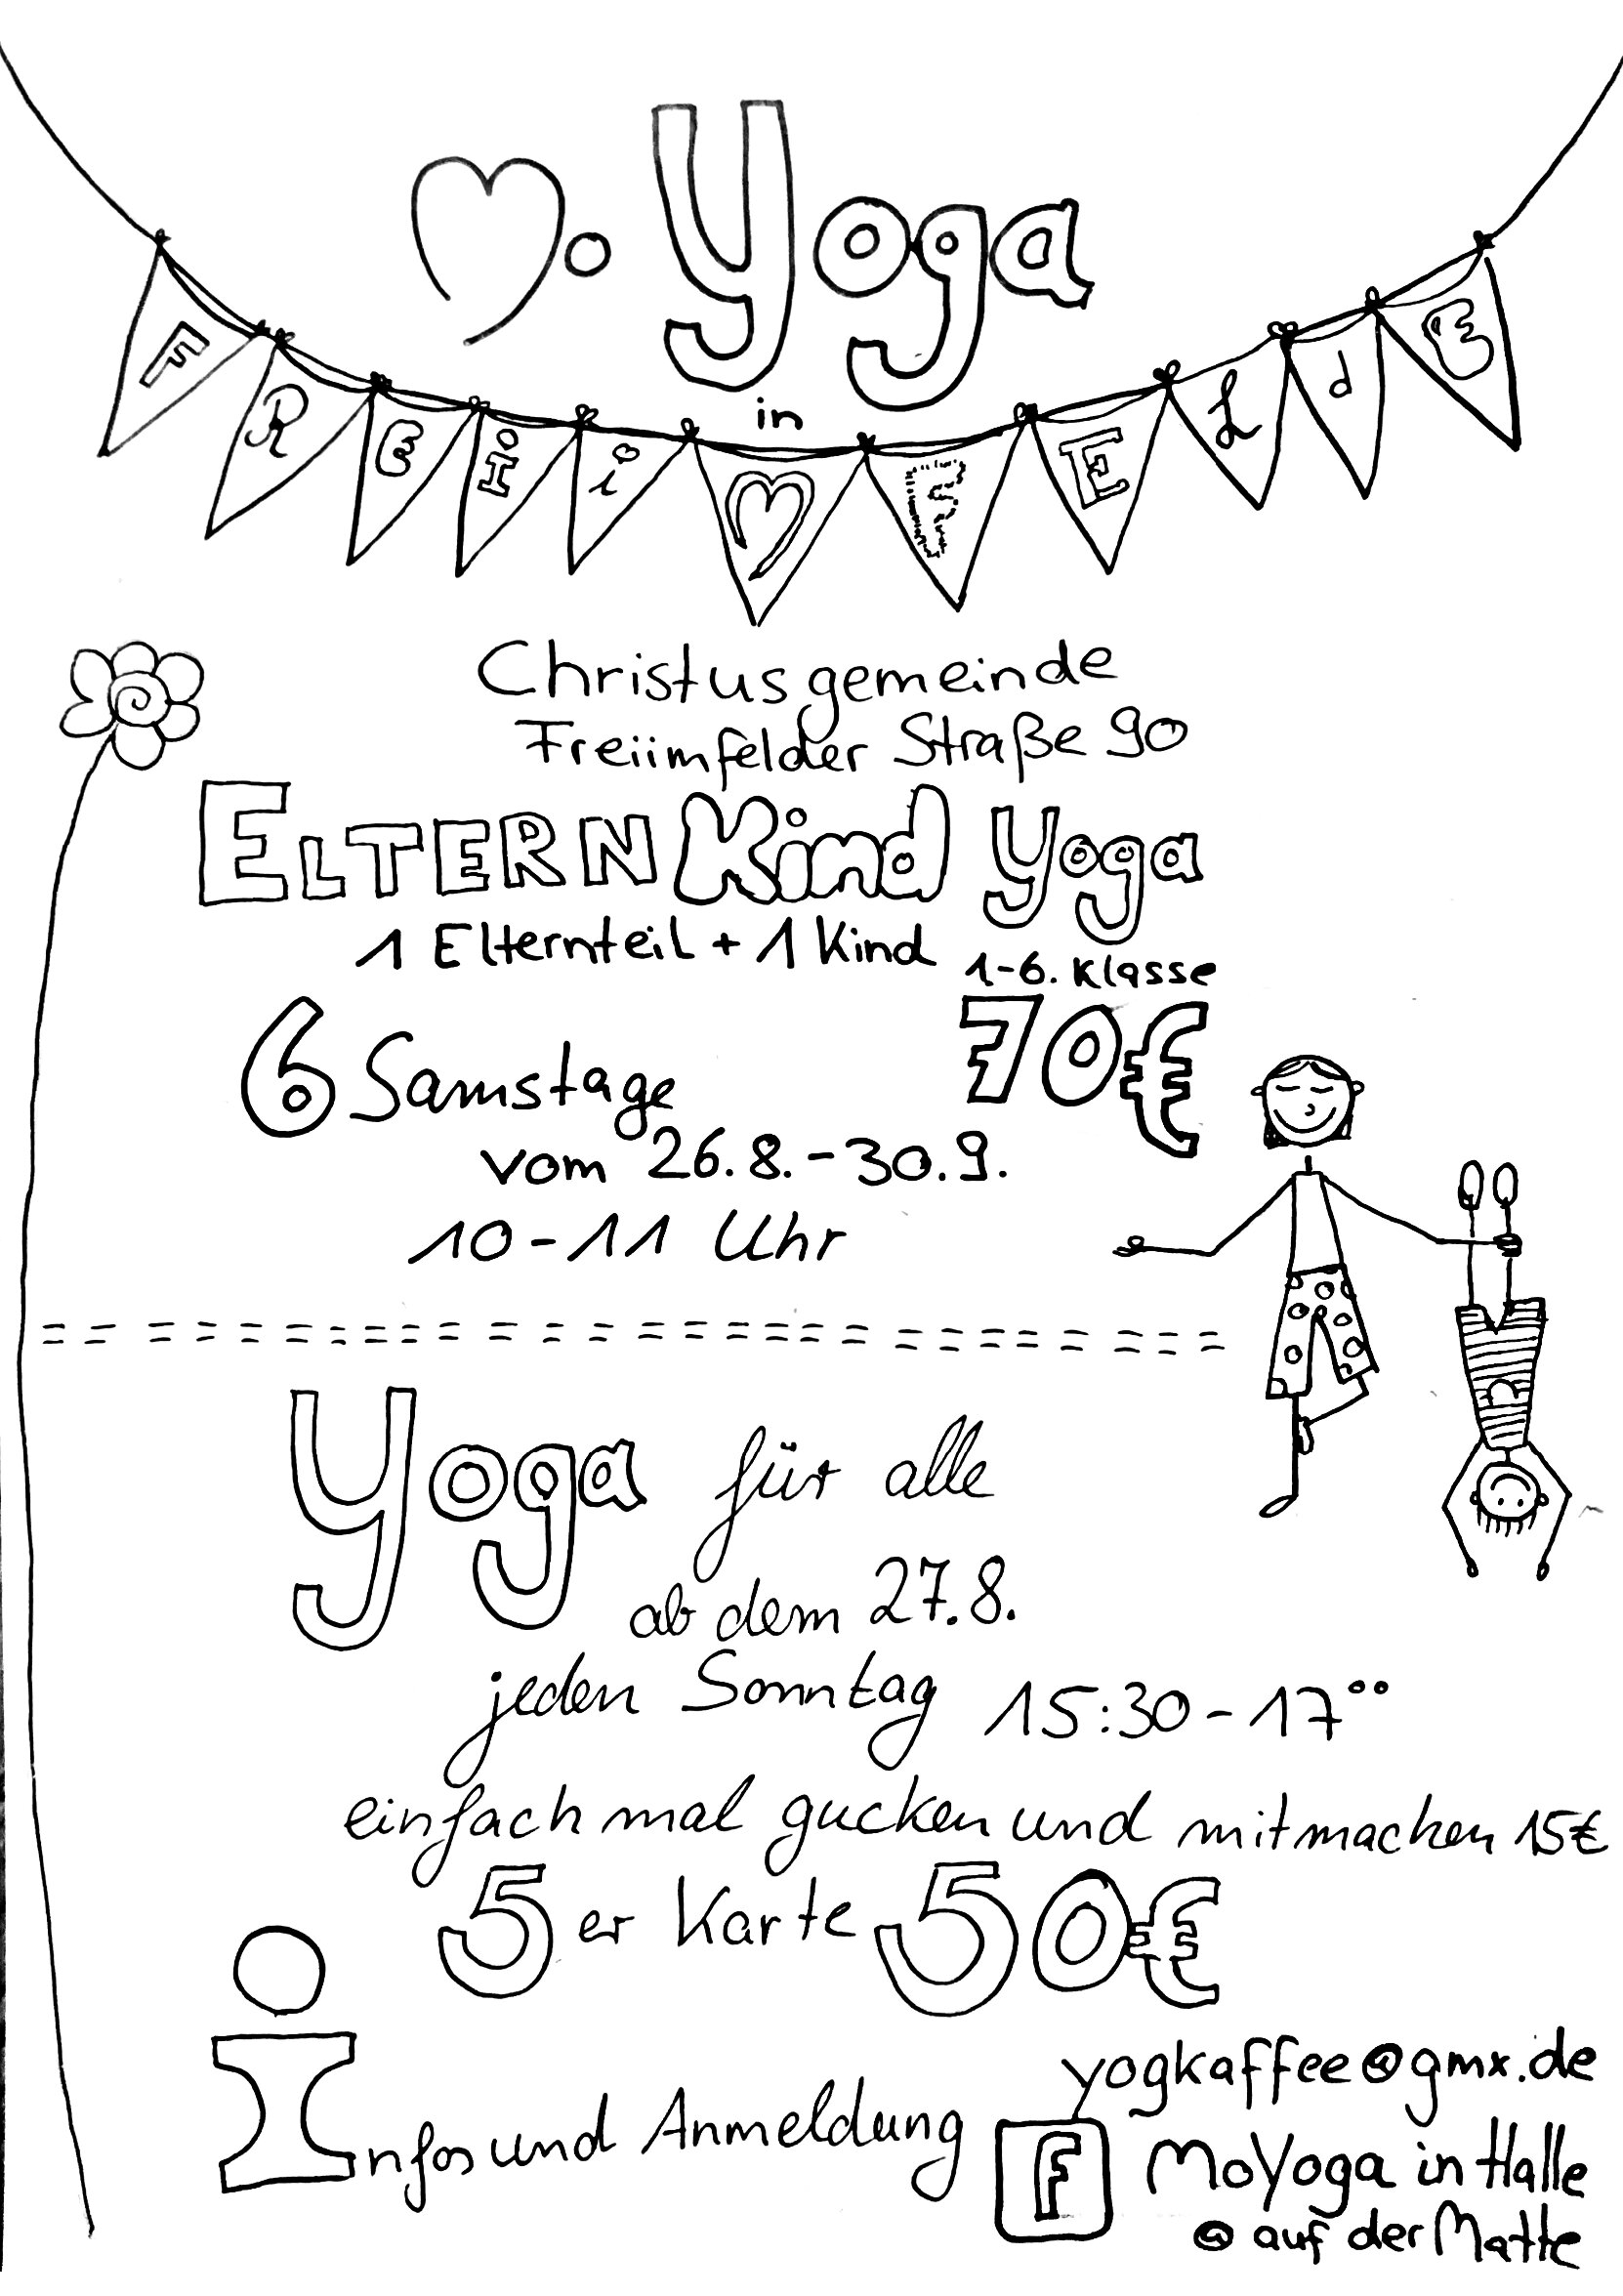 Mo Yoga
in
FREIiMFELdE
Christusgemeinde
Freiimfelder Straße 90
ELTERN Kind Yoga
1 Elternteil + 1 Kind 1-6. Klasse
6 Samstage 70€
vom 26.8.-30.9.
10-11 Uhr
Yoga für alle
ab dem 27.8.
jeden Sonntag 15:30-17°°
einfach mal gucken und mitmachen 15€
5er Karte 50€
yogkaffee@gmx.de
Infos und Anmeldung
F MoYoga in Halle
@ auf der Matte